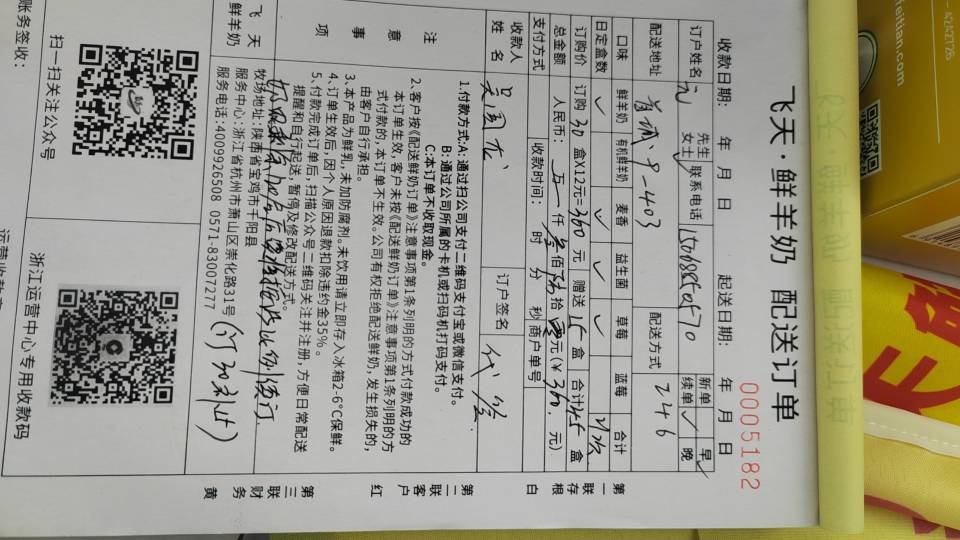 飞天·鲜羊奶 配送订单
0005182
收款日期: 年 月 日 起送日期: 年 月 日
订户姓名 先生 女士 联系电话 新单 续单 早 晚
配送地址 9-403 配送方式 246
口味 鲜羊奶 有机鲜羊奶 麦香 益生菌 草莓 蓝莓 合计
日定盒数 ✓ ✓ ✓ ✓
订购价 订购 30 盒X12元=360 元 赠送 15 盒 合计 45 盒
总金额 人民币: 万 仟 叁 佰 陆 拾 零 元(¥ 360 元)
支付方式 收款时间: 时 分 秒 商户单号
收款人姓名 吴国龙 订户签名 代签
注意事项
1.付款方式:A: 通过扫公司支付二维码支付宝或微信支付。
B: 通过公司所属的卡机或扫码机打码支付。
C:本订单不收取现金。
2、客户按《配送鲜奶订单》注意事项第1条列明的方式付款成功的
本订单生效,客户未按《配送鲜奶订单》注意事项第1条列明的方
式付款的,本订单不生效。公司有权拒绝配送鲜奶,发生损失的,
由客户自行承担。
3、本产品为鲜乳,未加防腐剂。未饮用请立即存入冰箱2-6℃保鲜。
4、订单生效后,因个人原因退款扣除违约金35%。
5、付款完成订单后,扫描公众号二维码关注并注册,方便日常配送
提醒和自行起送,暂停及修改配送方式。
飞天鲜羊奶
牧场地址:陕西省宝鸡市千阳县
服务中心:浙江省杭州市萧山区崇化路31号
服务电话:4009926508 0571-83007277
扫一扫关注公众号
浙江运营中心专用收款码
账务签收:
第一联存根白
第二联客户红
第三联财务黄
feitian.com